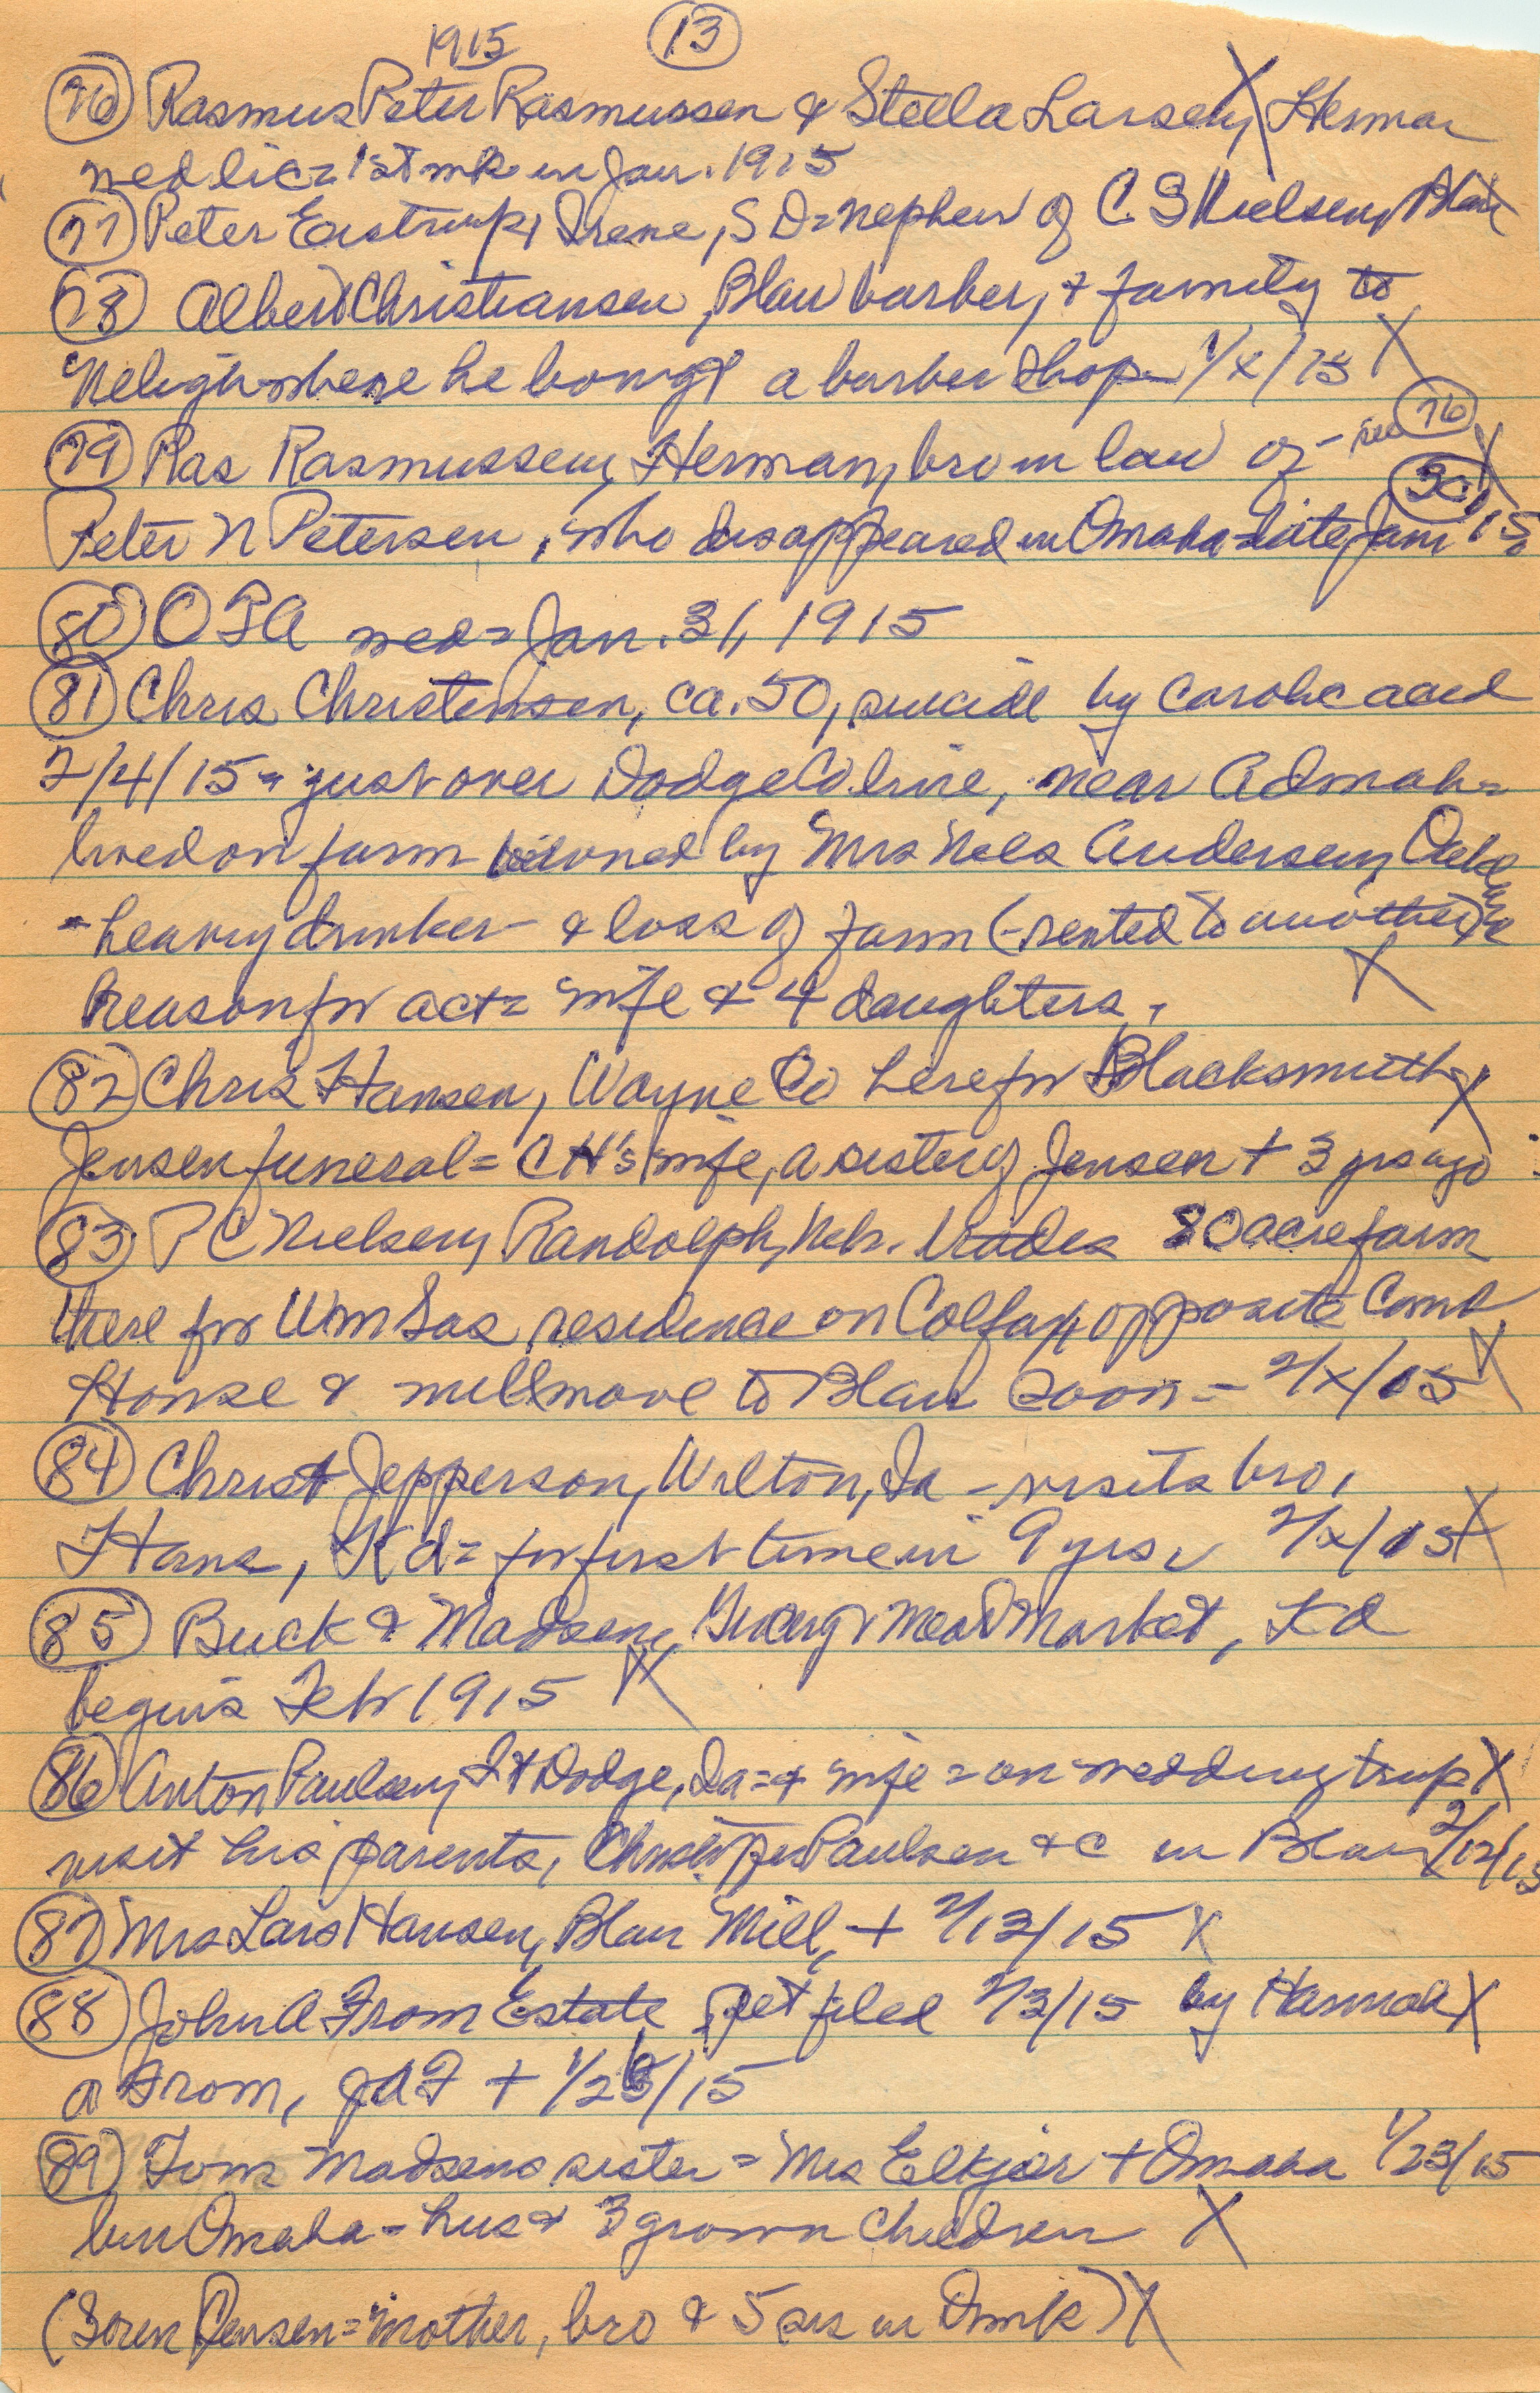 1915 13
76 Rasmus Peter Rasmussen & Stella Larsen, Herman X
wed lic = 1st wk in Jan. 1915
77 Peter Eastrup, Irene, S D = nephew of C S Nielsen, Blair X
78 Albert Christiansen, Blair barber, & family to
Neligh where he bougt a barber shop - 1/x/15 X
79 Ras Rasmussen, Herman, bro in law of - see 76 X
Peter N Petersen, who disappeared in Omaha late Jan 30 15
80 O F A wed = Jan. 31, 1915
81 Chris Christensen, ca. 50, suicide by carolic acid
2/4/15 = just over Dodge Co line, near Admah =
lived on farm owned by Mrs Nels Andersen, Oakland
- heavy drinker - & loss of farm (- rented to another)
reason for act = wife & 4 daughters. X
82 Chris Hansen, Wayne Co here for Blacksmith X
Jensen funeral = C H's wife, a sister of Jensen + 3 yrs ago
83 P C Nielsen, Randolph, Nebr. trades 80 acre farm
there for Wm Sas residence on Colfax opposite Court
House & will move to Blair soon - 2/x/15 X
84 Christ Jepperson, Wilton, Ia - visits bro,
Hans, Kd = for first time in 9 yrs 2/x/15 X
85 Buck & Madsen, Grocry & Meat Market, Kd
begins Febr 1915 X
86 Anton Paulsen, Ft Dodge, Ia = & wife = on wedding trip X
visit his parents, Paulsen & C in Blair 2/12/15
87 Mrs Lars Hansen, Blair Mill, + 2/13/15 X
88 John A From Estate pet filed 2/3/15 by Hannah X
A From, JAF + 1/26/15
89 Tom Madsens sister = Mrs Elkjer + Omaha 1/23/15
bur Omaha - hus & 3 grown children X
(Soren Jensen = mother, bro & 5 sis in Dmk) X